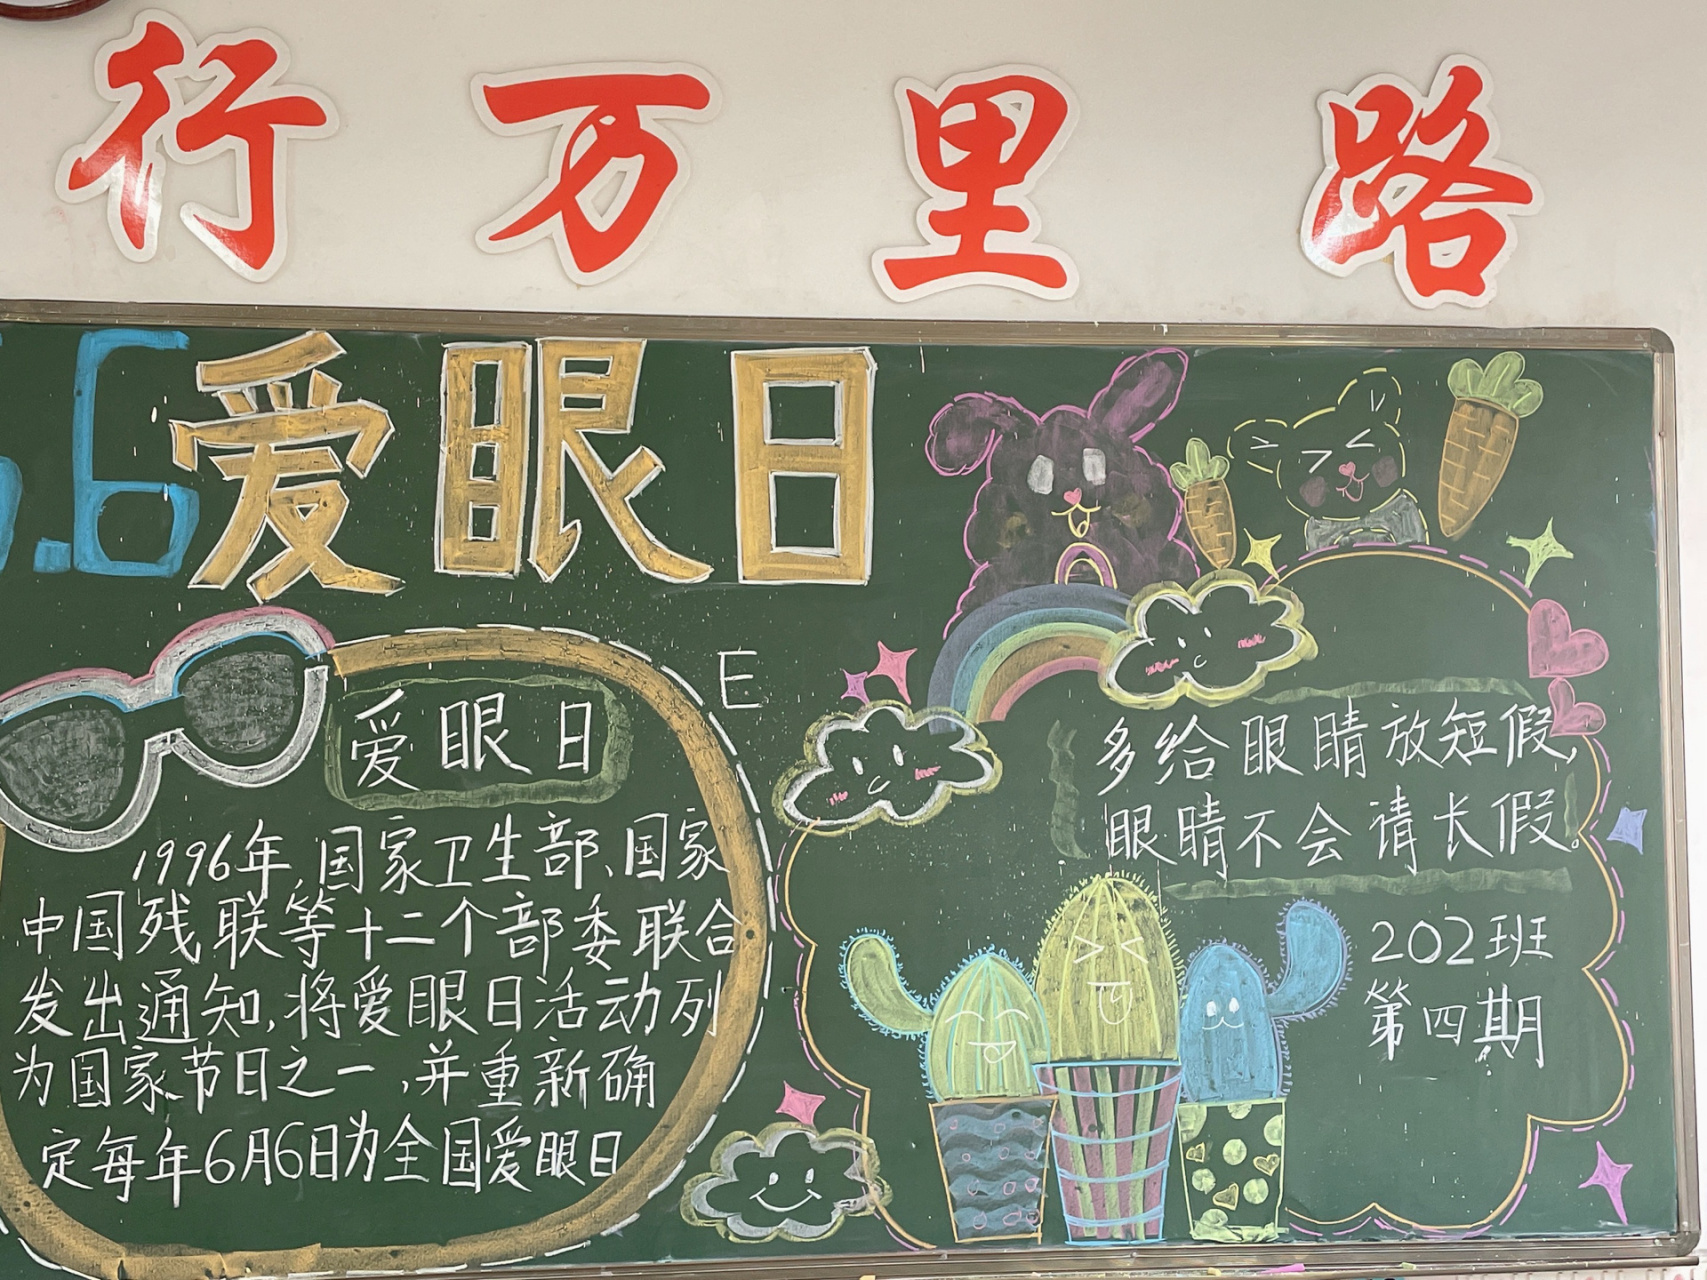 行万里路
.6爱眼日
E
爱眼日
1996年,国家卫生部、国家
中国残联等十二个部委联合
发出通知,将爱眼日活动列
为国家节日之一,并重新确
定每年6月6日为全国爱眼日
多给眼睛放短假,
眼睛不会请长假。
202班
第四期